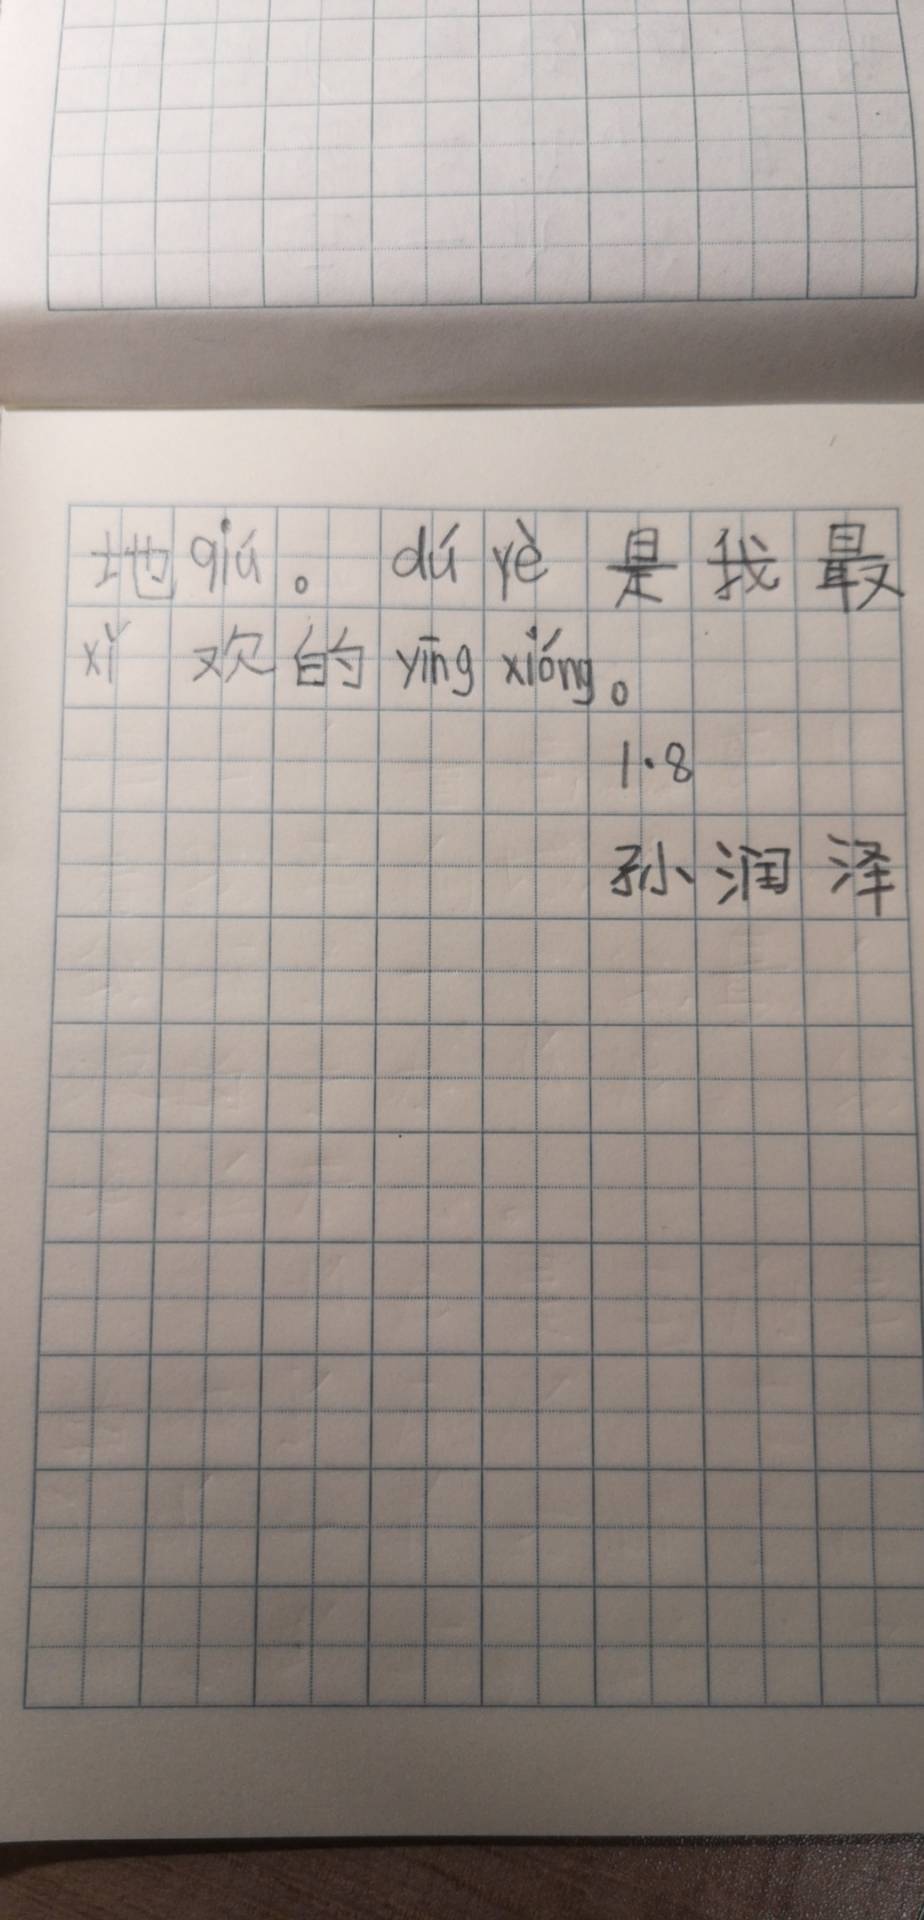 地qiú。dú yè是我最
xǐ欢的yīng xióng。
1·8
孙润泽